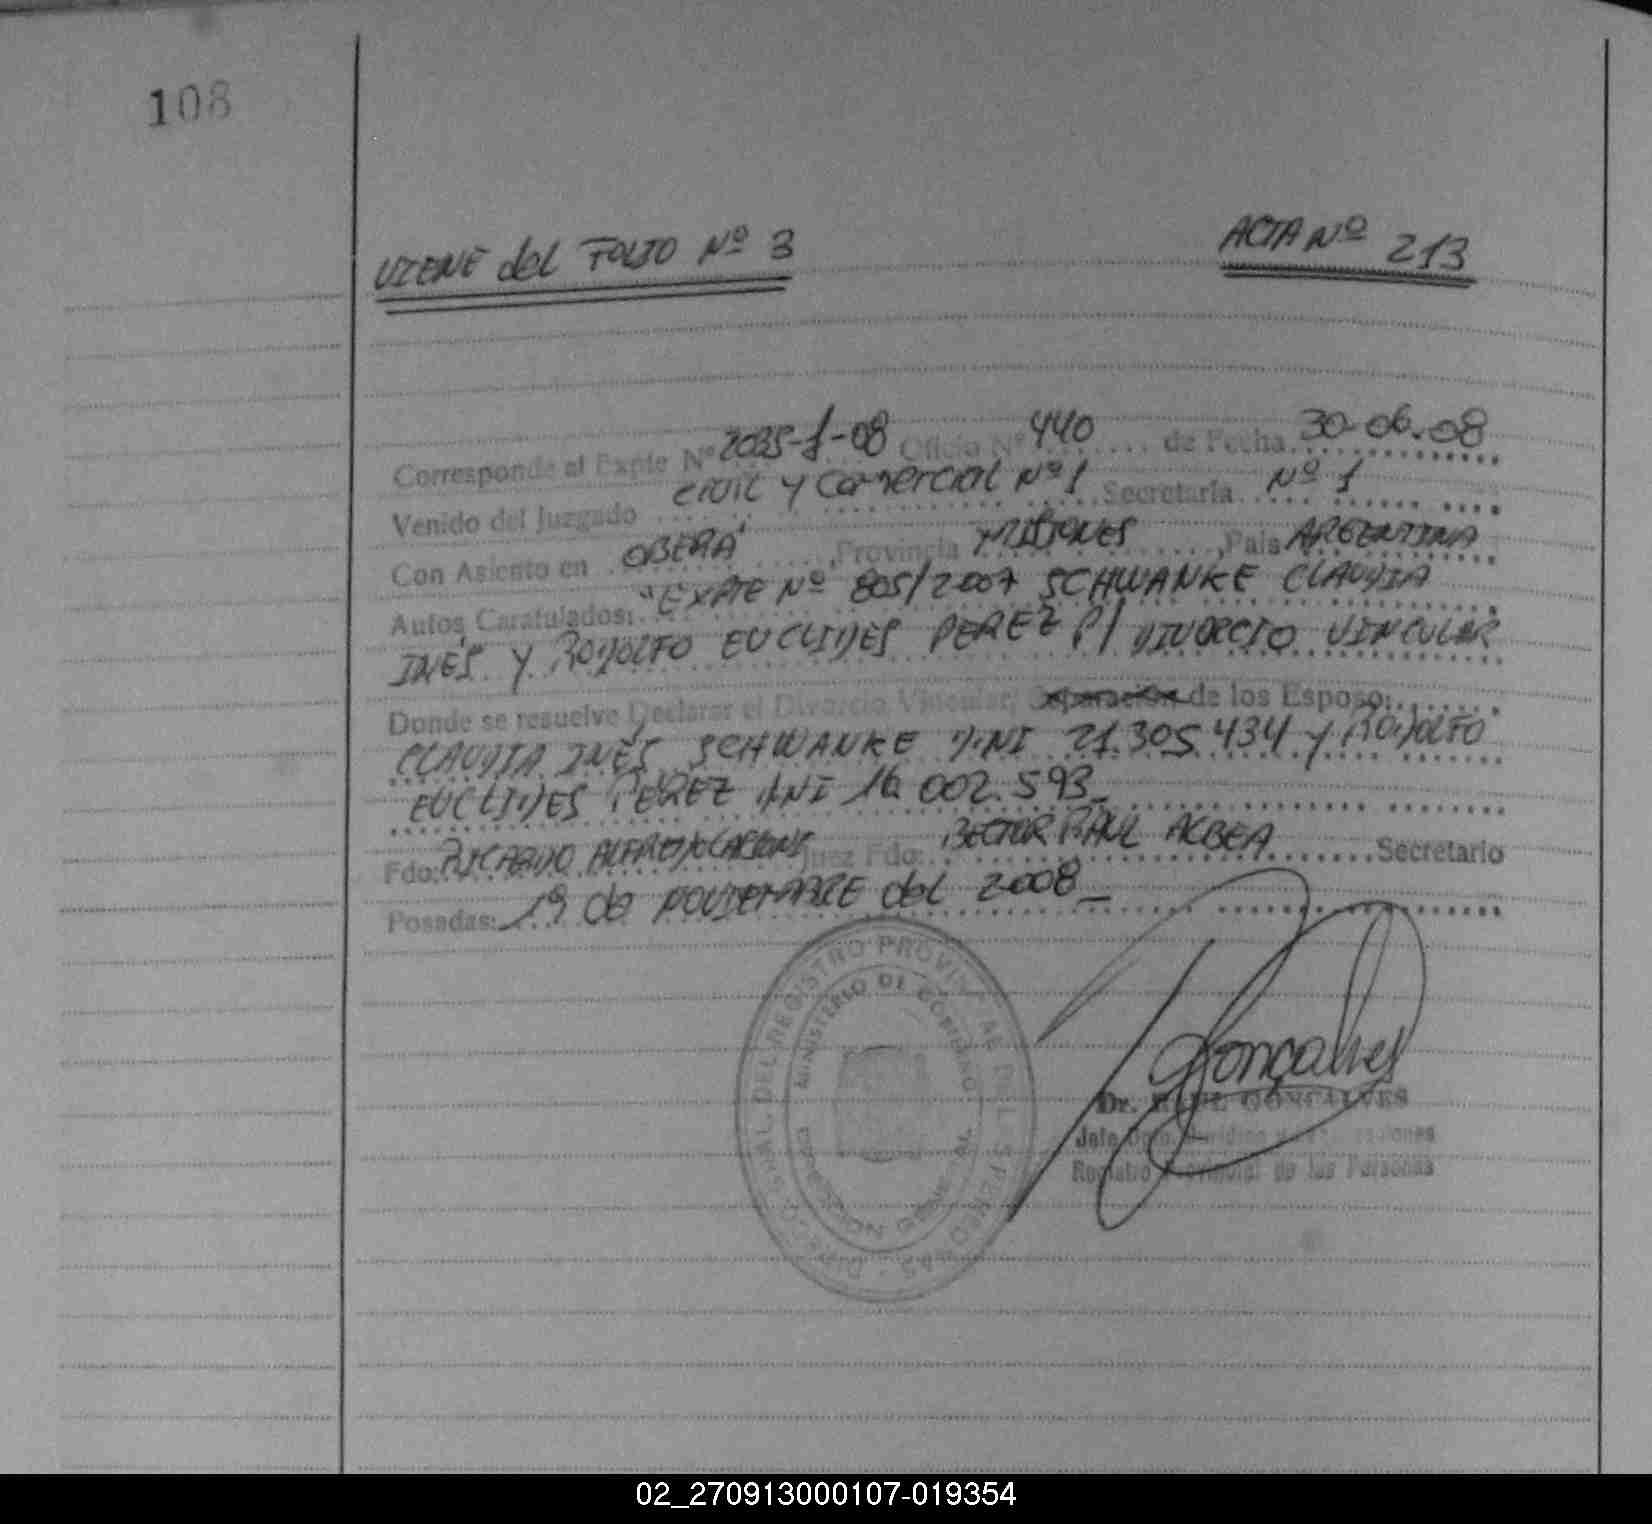 108
VIENE del FOLIO Nº 3
ACTA Nº 213
Corresponde al Expte Nº 2035-1-08 Oficio Nº 440 de Fecha 30-06-08
Venido del Juzgado civil y Comercial Nº 1 Secretaría Nº 1
Con Asiento en OBERÁ, Provincia MISIONES, Pais ARGENTINA
Autos Caratulados: "EXPTE Nº 805/2007 SCHWANKE CLAUDIA
INÉS Y RODOLFO EUCLIDES PEREZ P/ DIVORCIO VINCULAR
Donde se resuelve Declarar el Divorcio Vincular, Separación de los Esposo:
CLAUDIA INÉS SCHWANKE DNI 21.305.434 y RODOLFO
EUCLIDES PEREZ DNI 16.002.593_
Fdo: RICARDO ALFREDO Juez Fdo: RAUL Secretario
Posadas: 19 de NOVIEMBRE del 2008_
DEL REGISTRO PROVINCIAL DE LAS PERSONAS
MINISTERIO DE GOBIERNO
Gonçalves
Dr. RAUL GONCALVES
Registro Provincial de las Personas
02_270913000107-019354